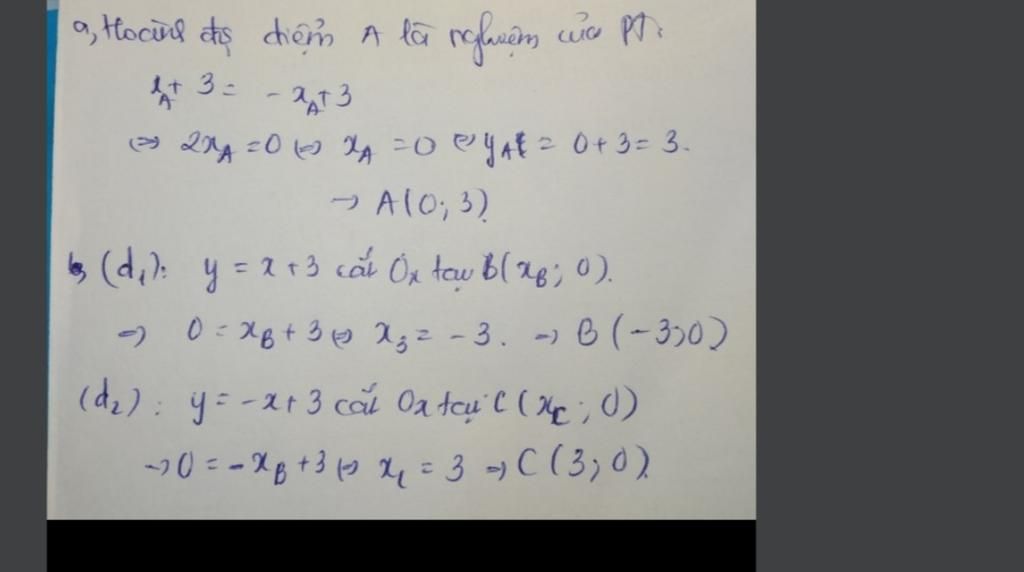 a, Hoành độ điểm A là nghiệm của PT:
x_A + 3 = -x_A + 3
⇔ 2x_A = 0 ⇔ x_A = 0 ⇔ y_A = 0 + 3 = 3.
→ A(0; 3)
b, (d₁): y = x + 3 cắt Ox tại B(x_B; 0).
⇒ 0 = x_B + 3 ⇔ x_3 = -3. → B(-3; 0)
(d₂): y = -x + 3 cắt Ox tại C(x_C; 0)
→ 0 = -x_B + 3 ⇔ x_C = 3 ⇒ C(3; 0).